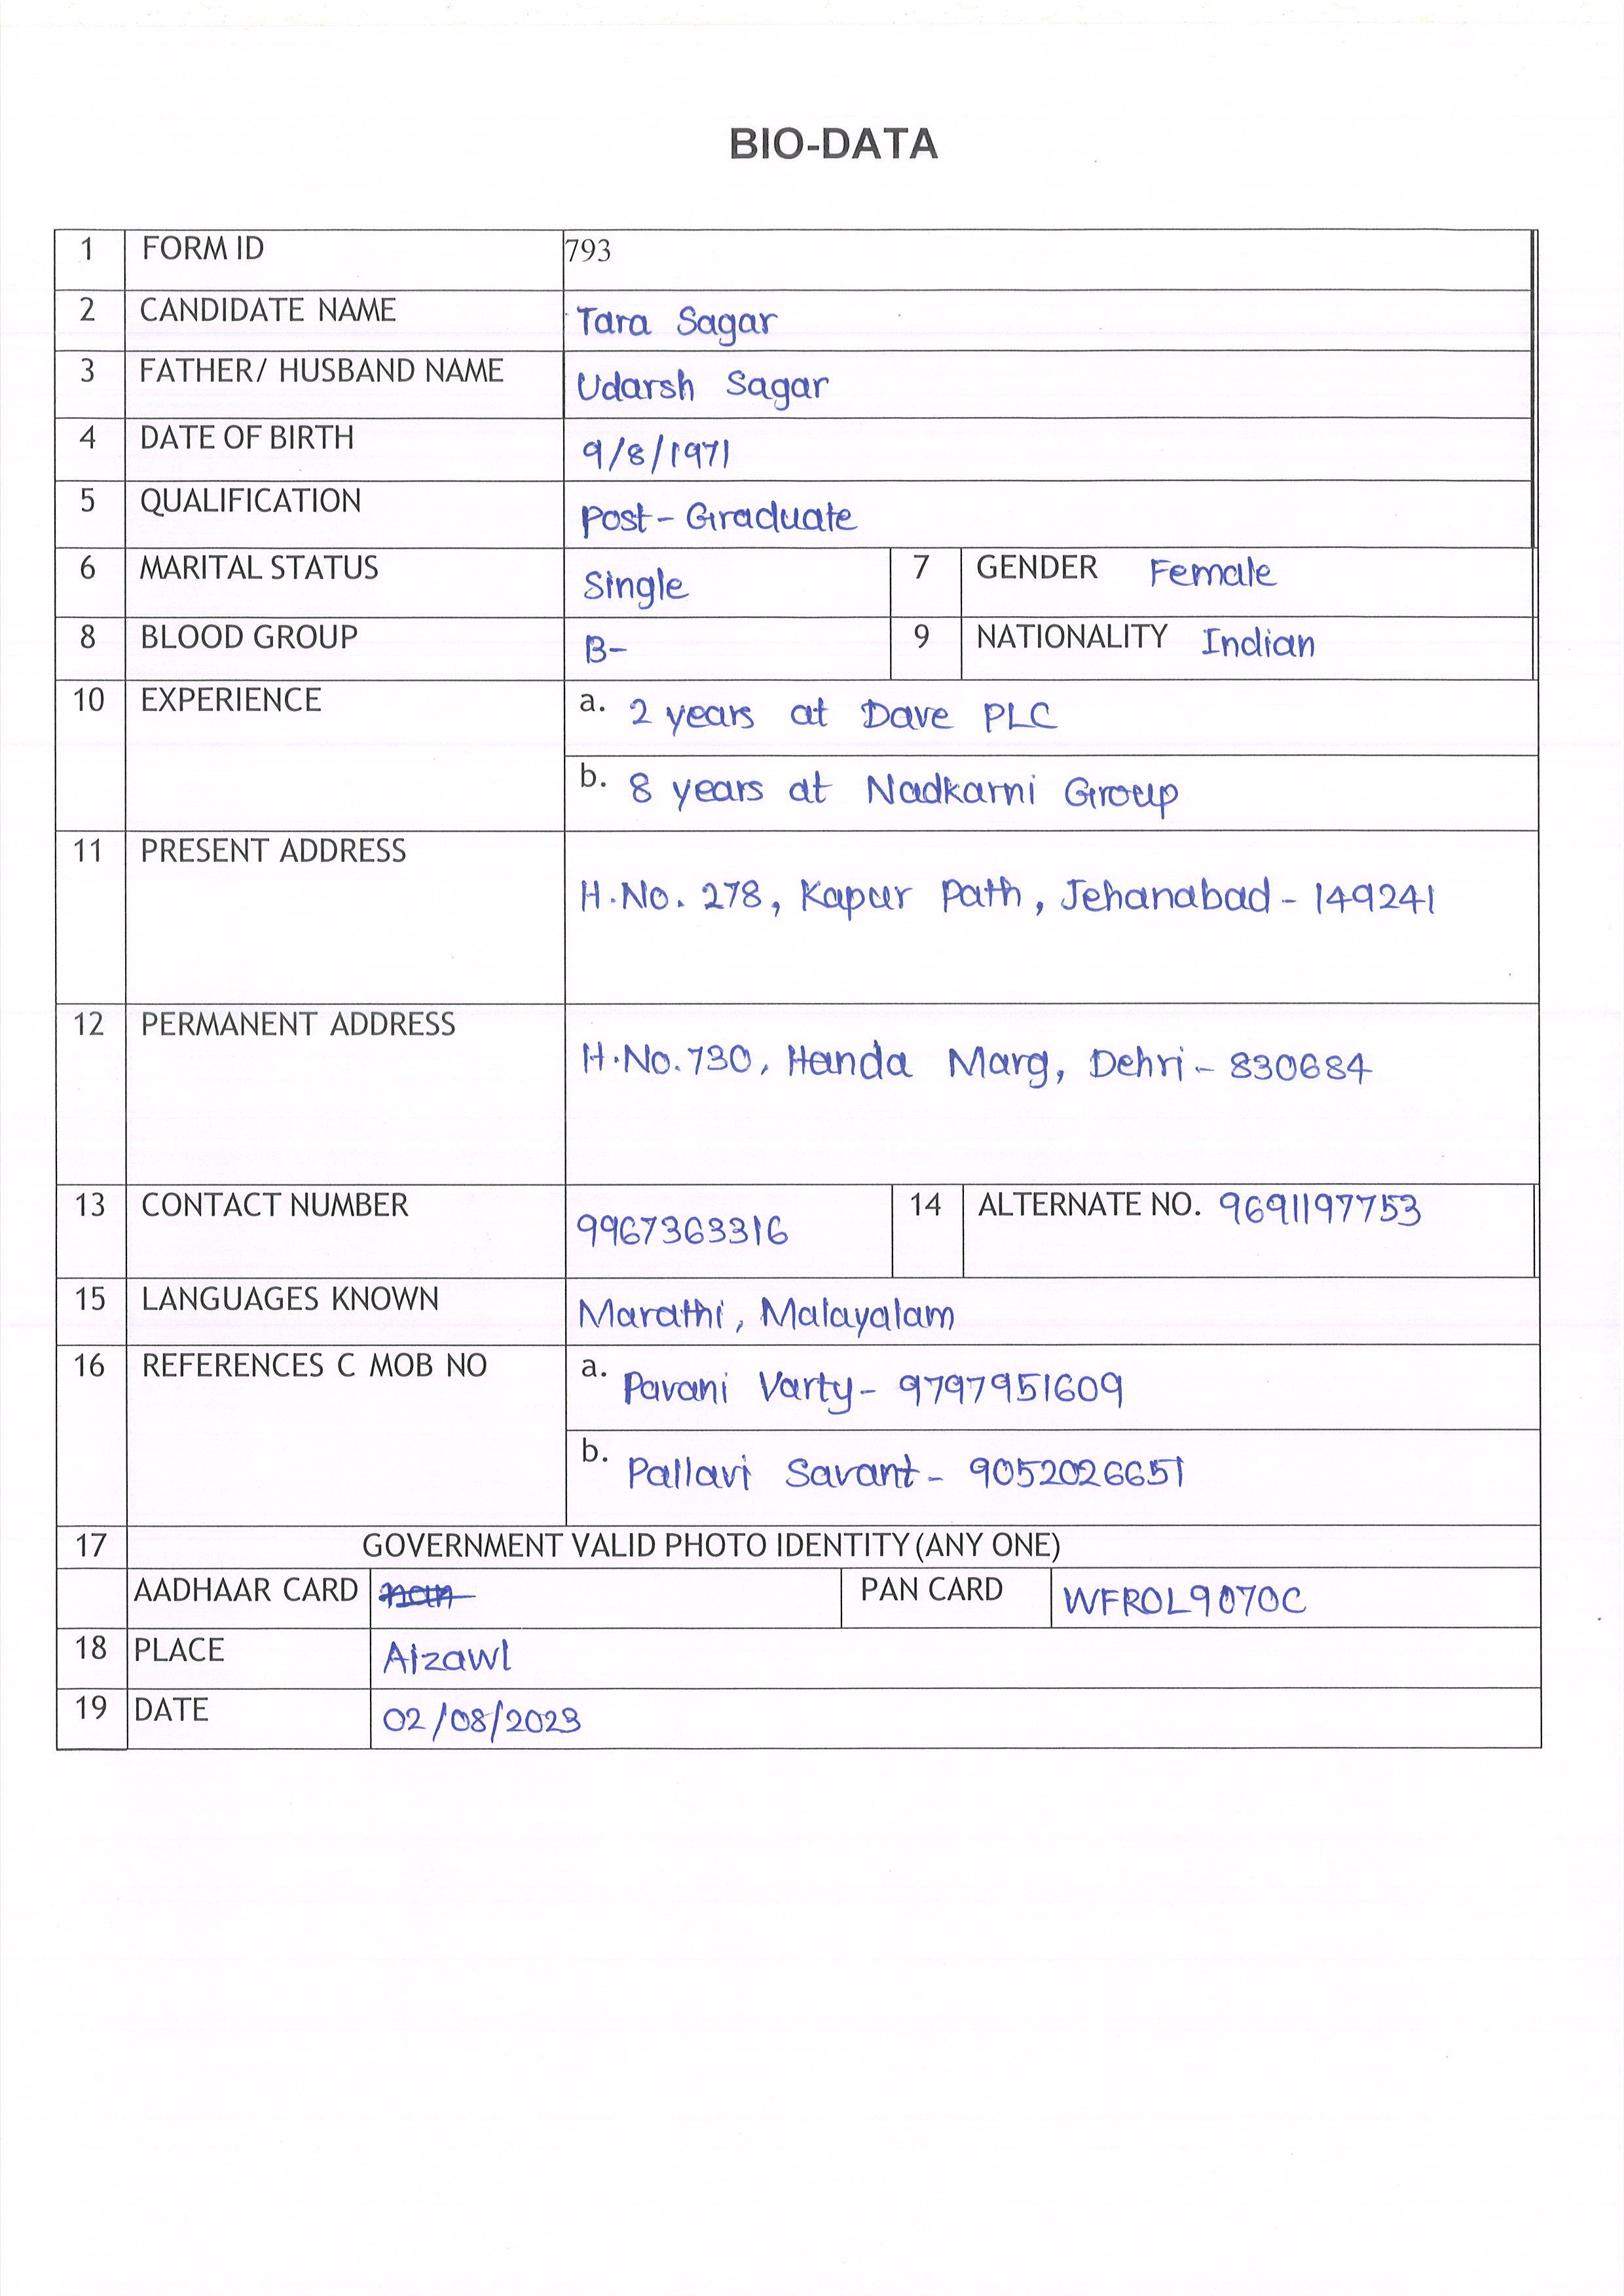 BIO-DATA
1 FORM ID 793
2 CANDIDATE NAME Tara Sagar
3 FATHER/ HUSBAND NAME Udarsh Sagar
4 DATE OF BIRTH 9/8/1971
5 QUALIFICATION Post-Graduate
6 MARITAL STATUS Single 7 GENDER Female
8 BLOOD GROUP B- 9 NATIONALITY Indian
10 EXPERIENCE a. 2 years at Dave PLC
b. 8 years at Nadkarni Group
11 PRESENT ADDRESS
H.No. 278, Kapur Path, Jehanabad - 149241
12 PERMANENT ADDRESS
H.No.730, Handa Marg, Dehri - 830684
13 CONTACT NUMBER 9967363316 14 ALTERNATE NO. 9691197753
15 LANGUAGES KNOWN Marathi, Malayalam
16 REFERENCES C MOB NO a. Pavani Varty- 9797951609
b. Pallavi Savant - 9052026651
17 GOVERNMENT VALID PHOTO IDENTITY(ANY ONE)
AADHAAR CARD nan PAN CARD WFROL9070C
18 PLACE Aizawl
19 DATE 02/08/2023